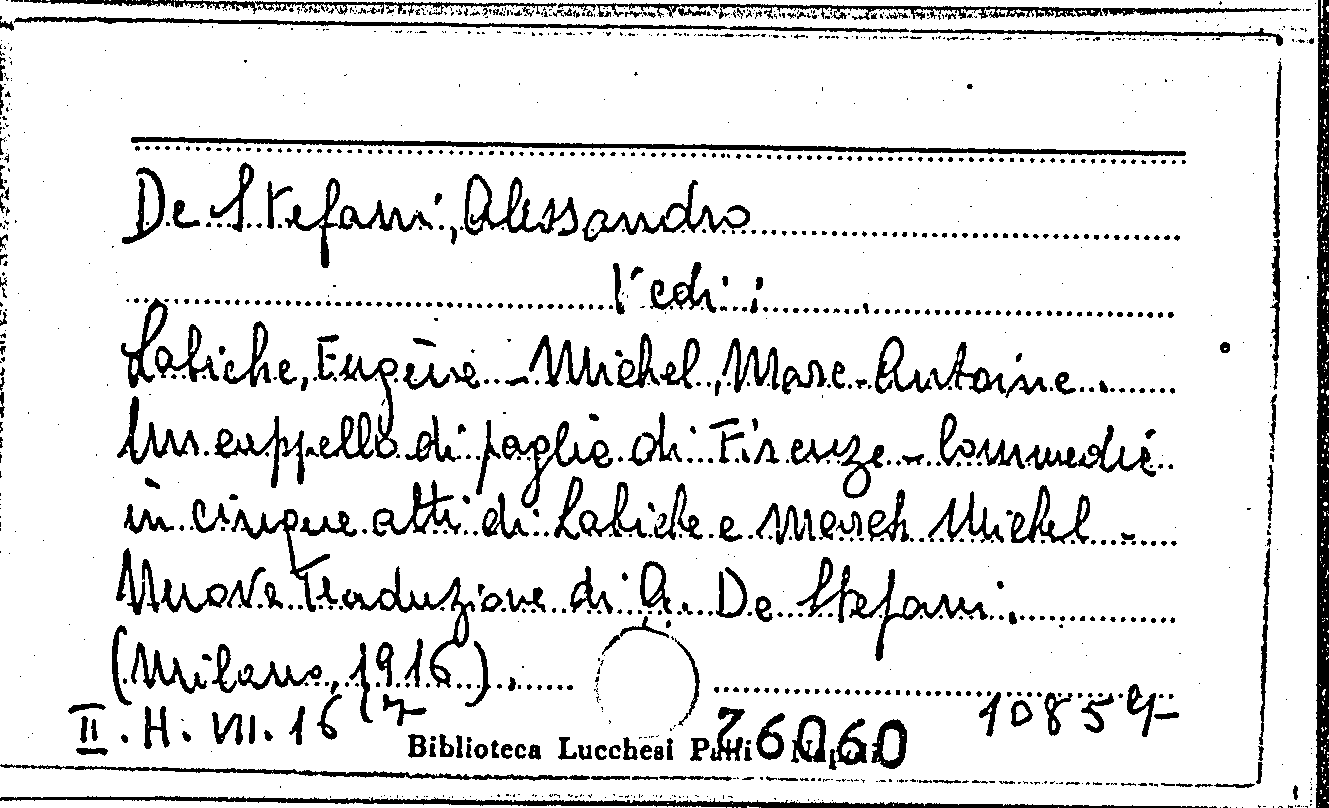 De Stefani, Alessandro
Vedi:
Labiche, Eugène - Michel, Marc-Antoine.
Un cappello di paglia di Firenze - Commedia
in cinque atti di Labiche e March Michel -
Nuova Traduzione di A. De Stefani.
(Milano, 1916).
II. H. VII. 16
Biblioteca Lucchesi Palli Napoli
76060